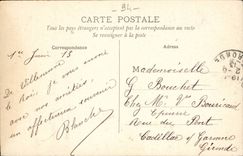 94
CARTE POSTALE
Tous les pays étrangers n'acceptent pas la correspondance au recto
Se renseigner à la poste
Correspondance
1er Juin 13
De Villeneuve
le Roi. Je vous envoie
avec nos amitiés
un affectueux souvenir
Blanche
Mademoiselle
G Bouchet
Chez M. Vve
Epicerie
Rue du Port
Cadillac s/ Garonne
Gironde